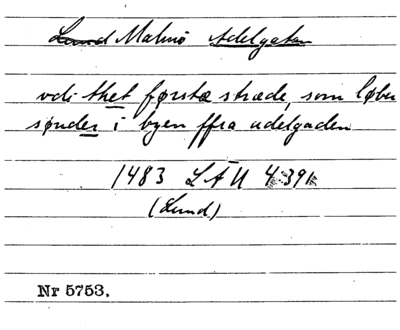 Lund Malmö Adelgatan
vdi thet førstæ stræde, som løber
sønder i byen ffra adelgaden
1483 LÄU 4:391
(Lund)
Nr 5753.